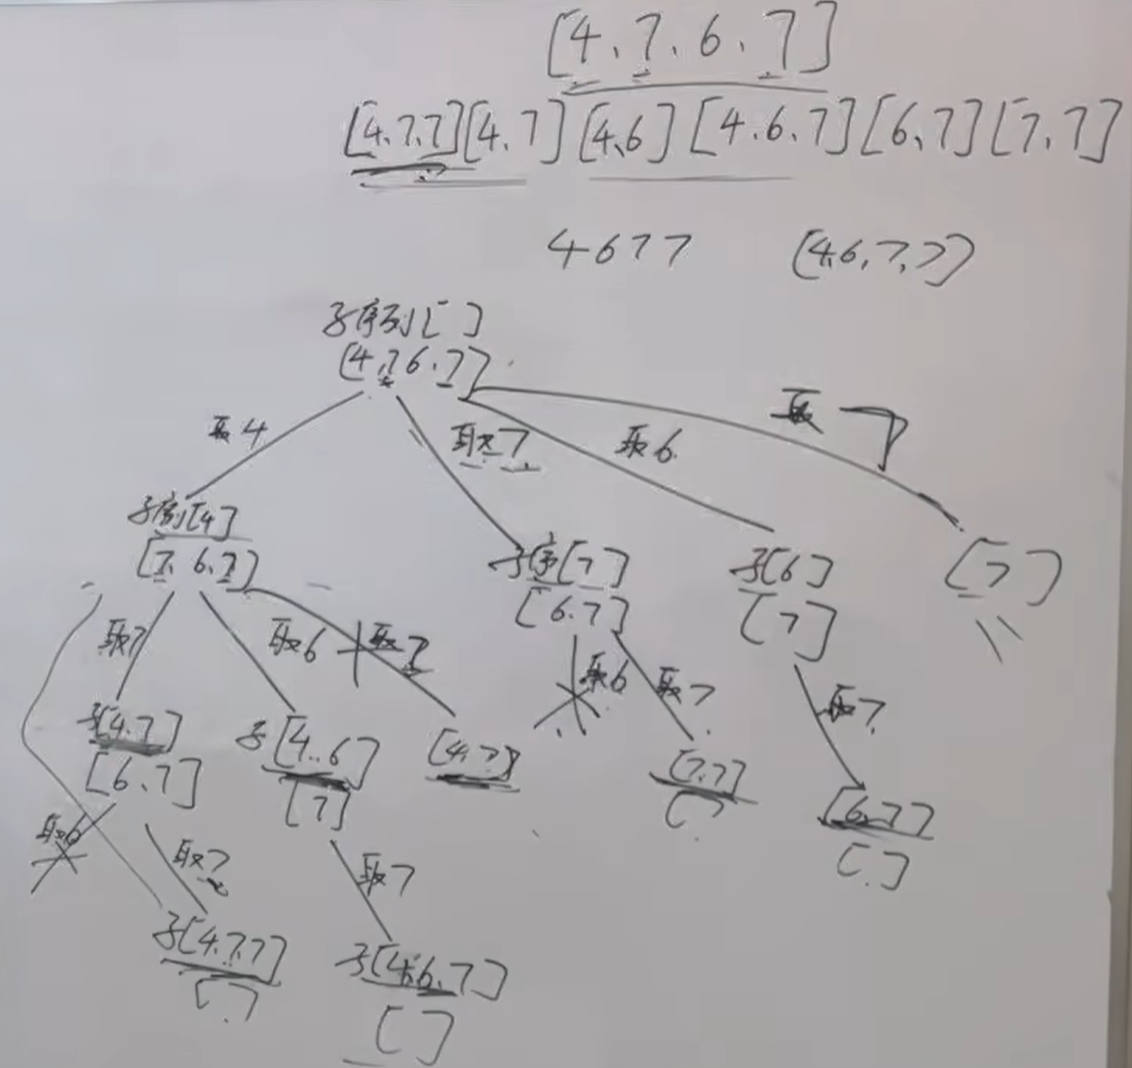 [4、7、6、7]
[4.7.7][4.7][4.6][4.6.7][6.7][7.7]
4677 [4,6,7,7]
子序列[ ]
[4.7 6.7]
取4 取7 取6 取7
子序列[4]
[7.6.7]
子序[7] 子[6] [7]
[6.7] [7]
取7 取6 取7 取6 取7 取7
子[4.7] 子[4..6] [4.7] [7.7] [6.7]
[6.7] [7] [ ] [ ]
取6 取7 取7
子[4.7.7] 子[4.6.7]
[ ] [ ]